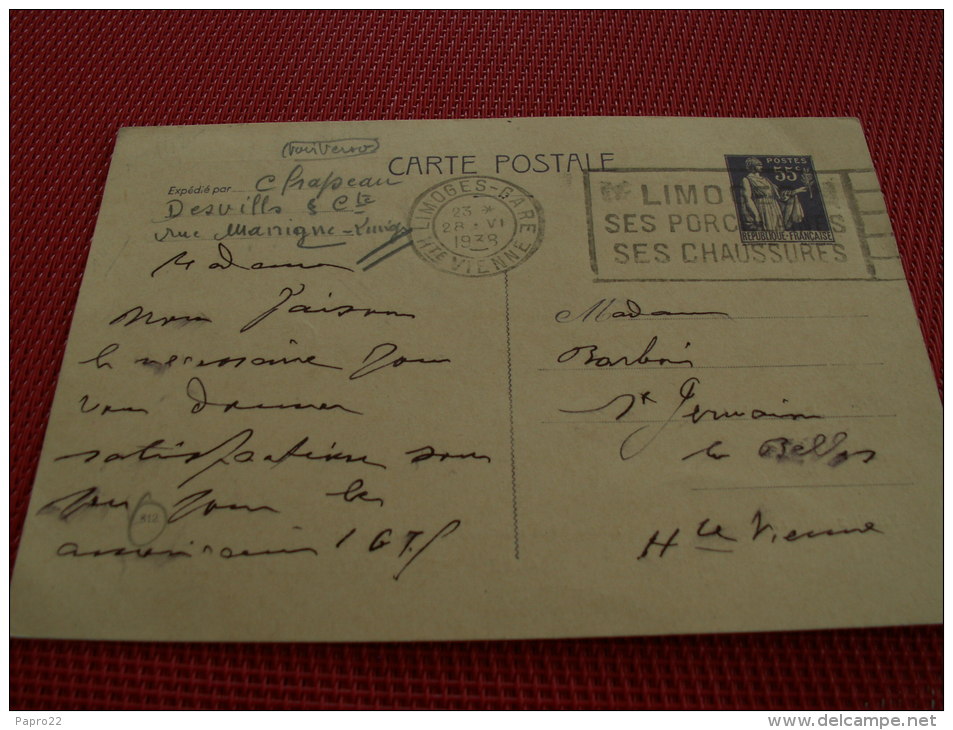 CARTE POSTALE
(voir verso)
Expédié par Chapeau
Desvilles & Cie
rue Manigne
LIMOGES-GARE
23 *
28 · VI
1938
HTE VIENNE
LIMOGES
SES PORC
SES CHAUSSURES
POSTES
55c
REPUBLIQUE-FRANCAISE
Madame
nous faisons
le nécessaire pour
vous donner
satisfaction sous
peu pour les
312
Madame
St Germain
les Belles
Hte Vienne
Papro22
www.delcampe.net